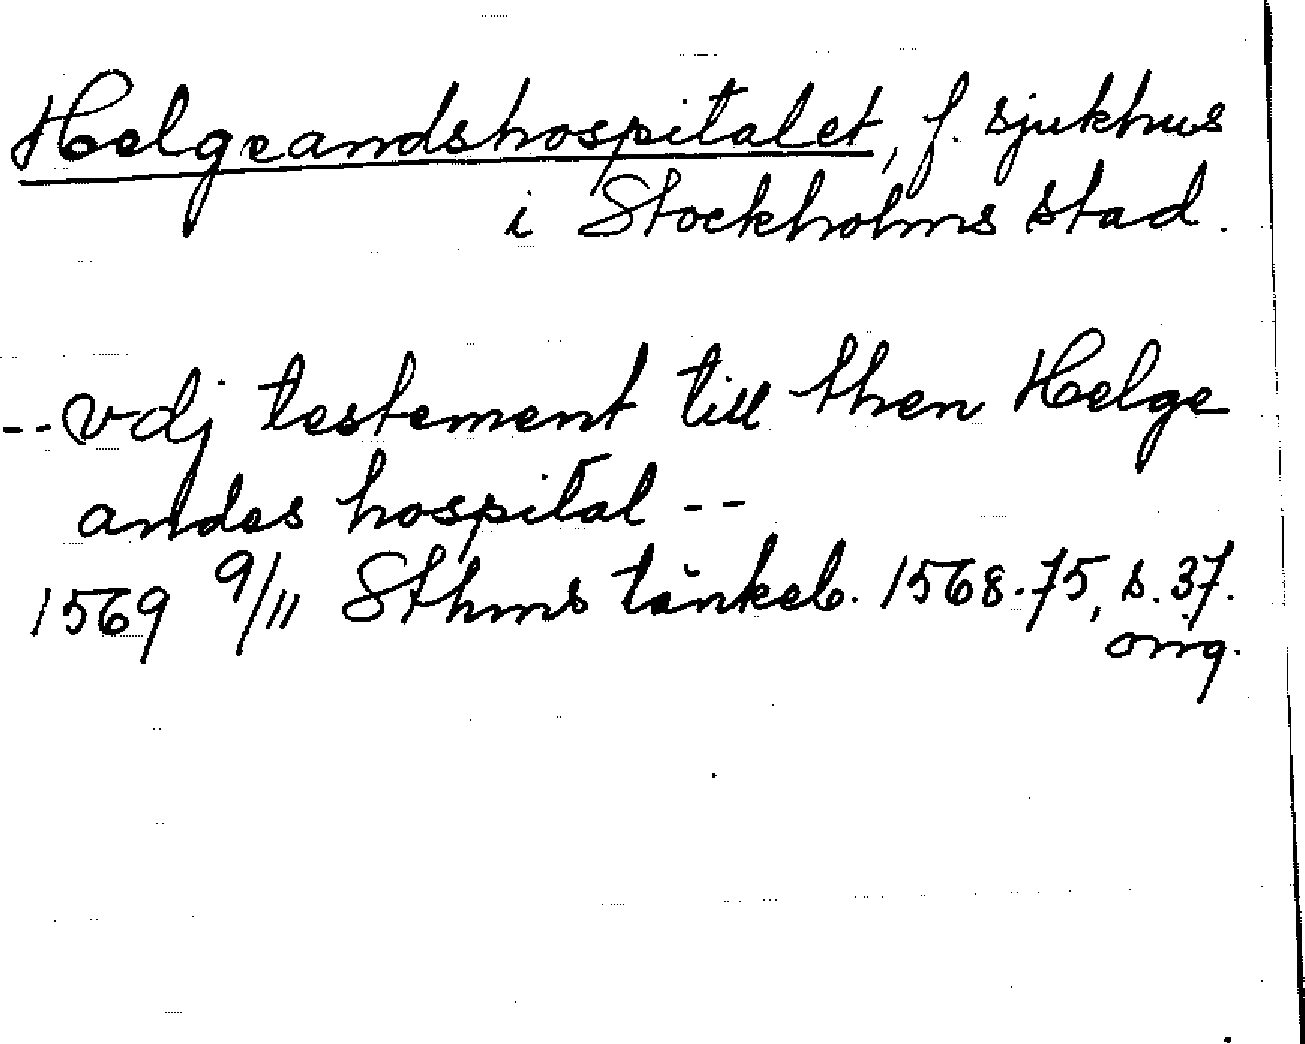 Helgeandshospitalet, f. sjukhus
i Stockholms stad.
-- vdj testement till then Helge
andes hospital --
1569 9/11 Sthms tänkeb. 1568-75, s. 37.
orig.